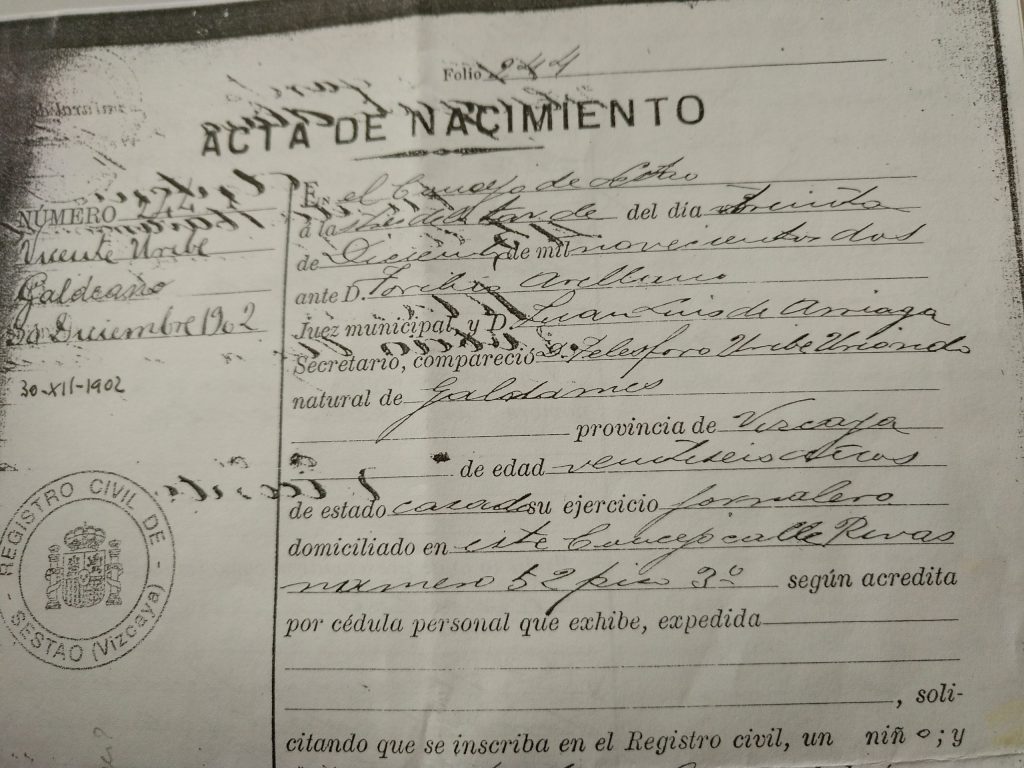 Folio 244
ACTA DE NACIMIENTO
NÚMERO
Vicente Uribe
Galdeano
30 Diciembre 1902
30-XII-1902
REGISTRO CIVIL DE
SESTAO (Vizcaya)
En el Concejo de Sestao
á la de la tarde del día treinta
de Diciembre de mil novecientos dos
ante D. Toribio Arellano
Juez municipal, y D. Juan Luis de Arriaga
Secretario, compareció D. Telesforo Uribe Uriondo
natural de Galdames
provincia de Vizcaya
de edad veintiseis años
de estado casado su ejercicio jornalero
domiciliado en este Concejo calle Rivas
numero 52 piso 3º según acredita
por cédula personal que exhibe, expedida
, soli-
citando que se inscriba en el Registro civil, un niño; y